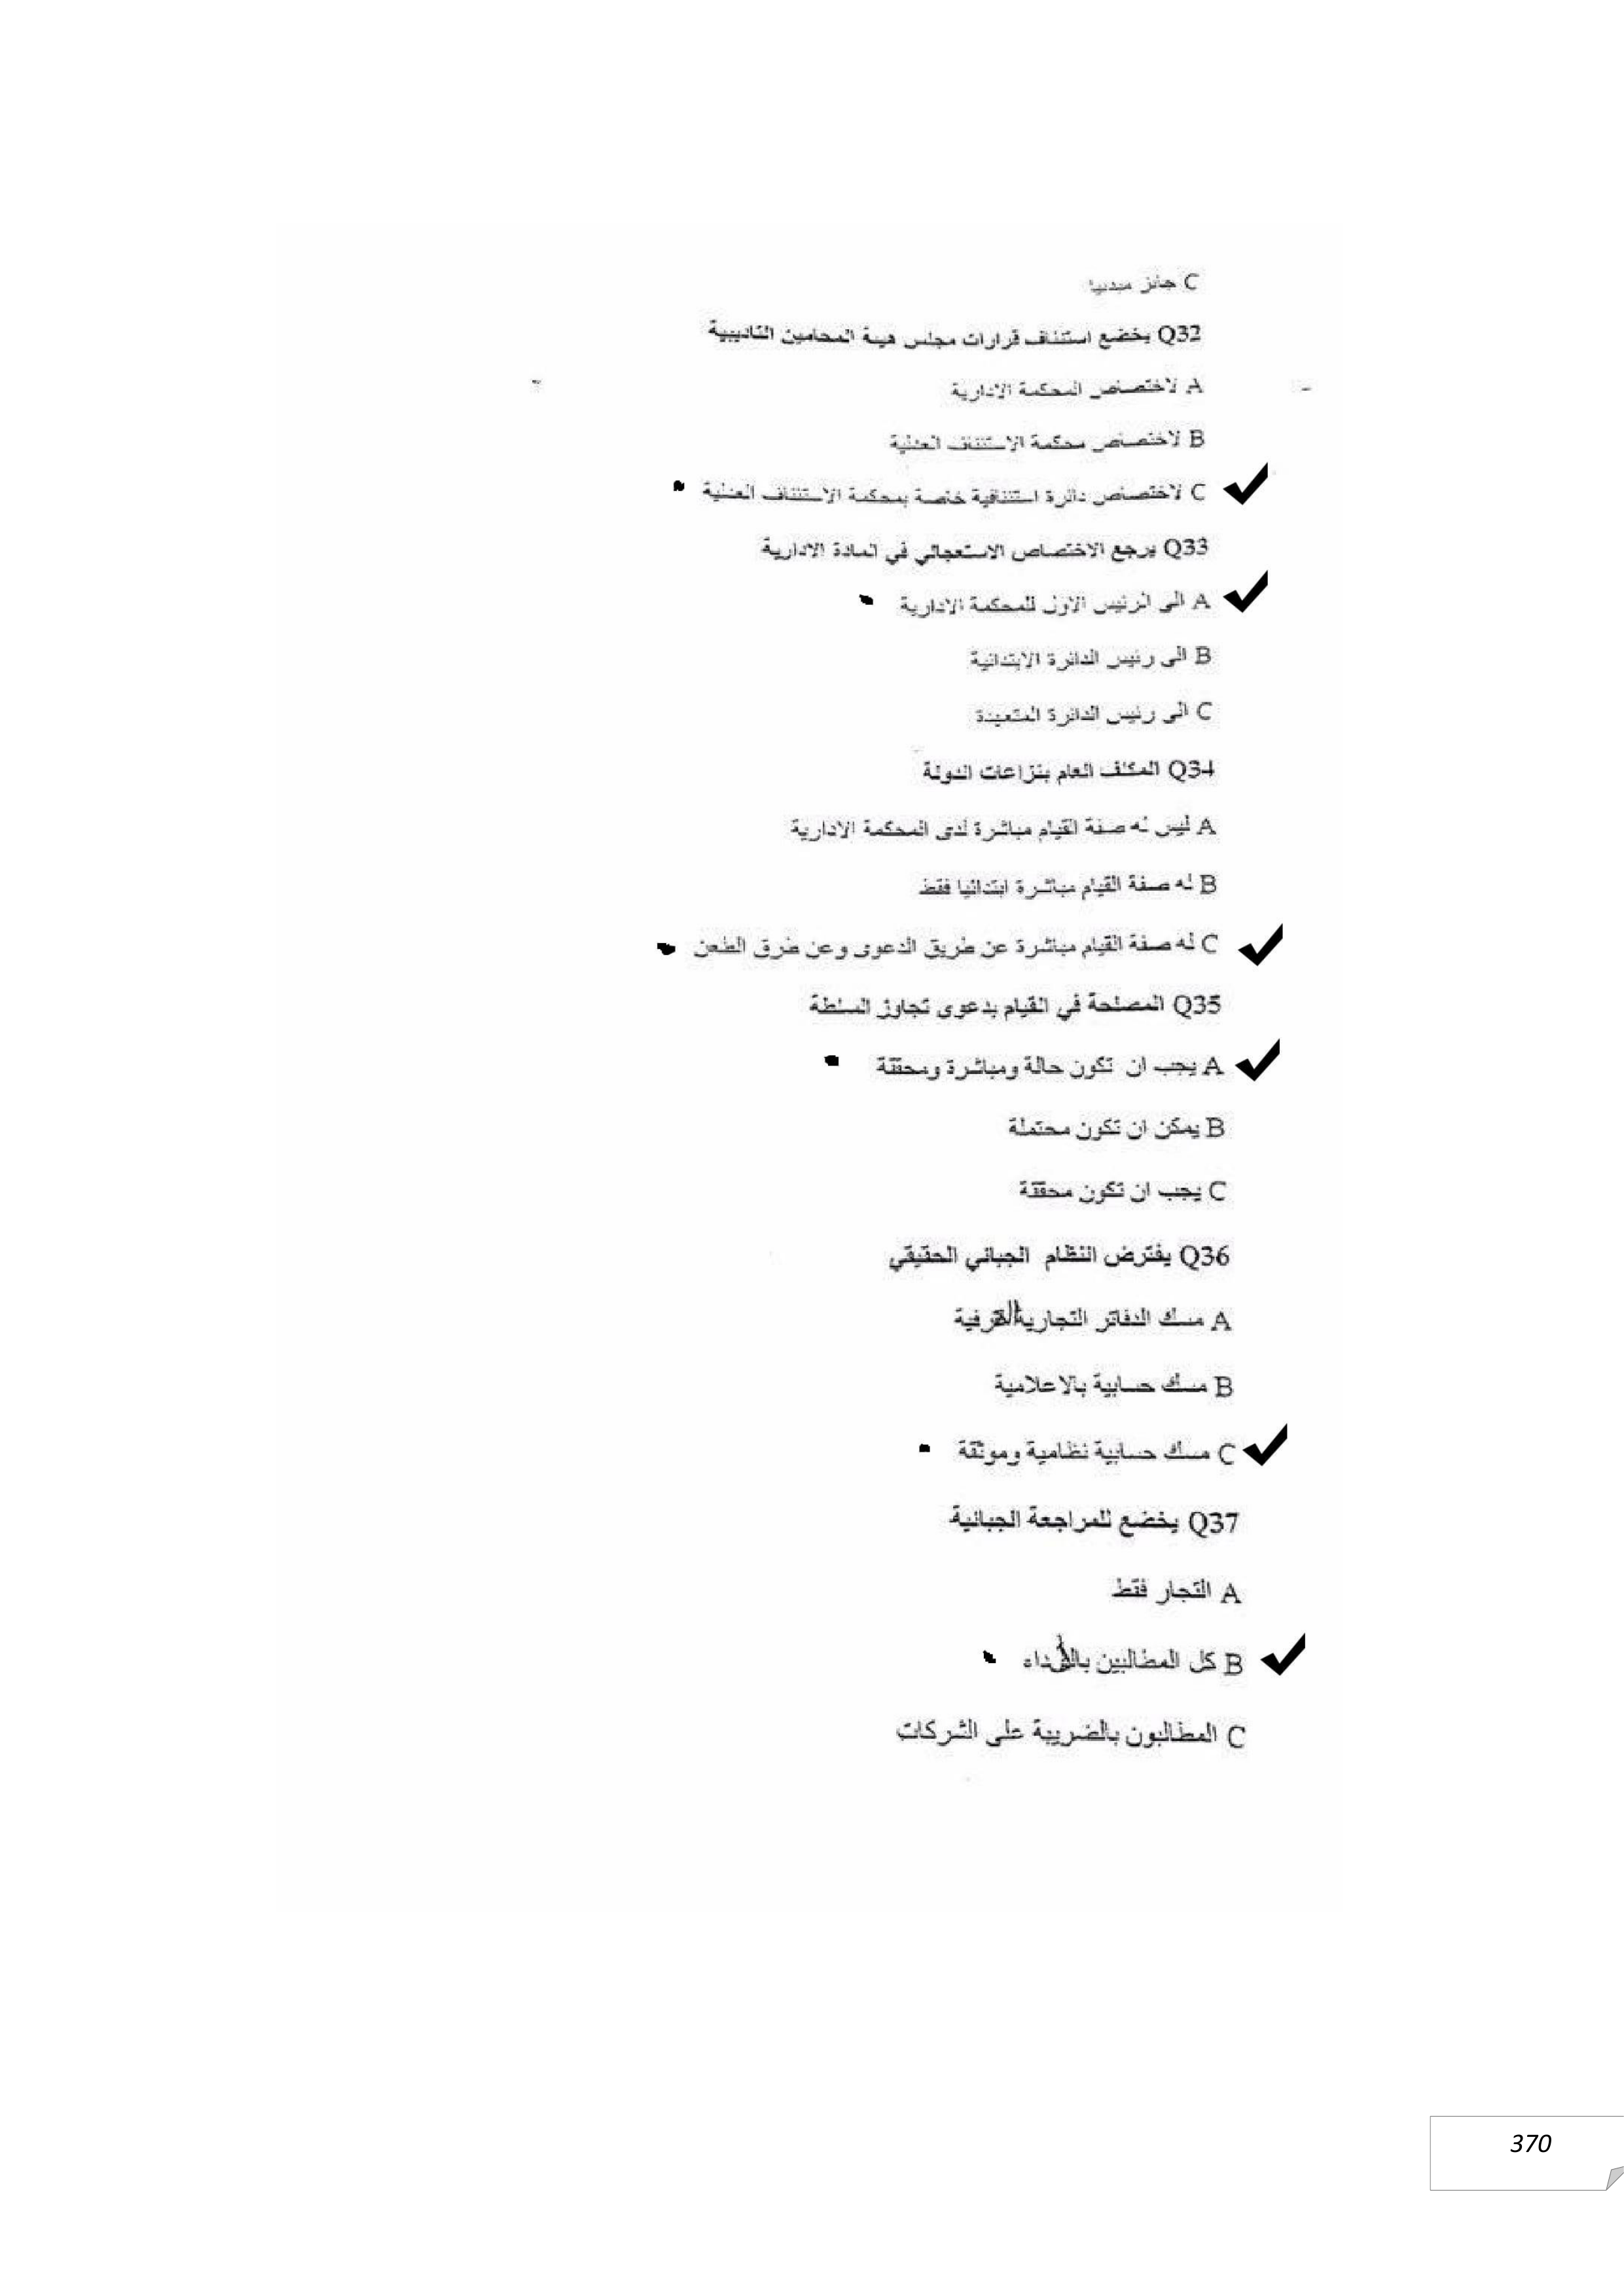 C جائز مبدئيا
Q32 يخضع استئناف قرارات مجلس هيئة المحامين التاديبية
A لاختصاص المحكمة الادارية
B لاختصاص محكمة الاستئناف العدلية
C لاختصاص دائرة استئنافية خاصة بمحكمة الاستئناف العدلية
Q33 يرجع الاختصاص الاستعجالي في المادة الادارية
A الى الرئيس الاول للمحكمة الادارية
B الى رئيس الدائرة الابتدائية
C الى رئيس الدائرة المتعهدة
Q34 المكلف العام بنزاعات الدولة
A ليس له صفة القيام مباشرة لدى المحكمة الادارية
B له صفة القيام مباشرة ابتدائيا فقط
C له صفة القيام مباشرة عن طريق الدعوى وعن طرق الطعن
Q35 المصلحة في القيام بدعوى تجاوز السلطة
A يجب ان تكون حالة ومباشرة ومحققة
B يمكن ان تكون محتملة
C يجب ان تكون محققة
Q36 يفترض النظام الجبائي الحقيقي
A مسك الدفاتر التجارية
B مسك حسابية بالاعلامية
C مسك حسابية نظامية وموثقة
Q37 يخضع للمراجعة الجبائية
A التجار فقط
B كل المطالبين بالاداء
C المطالبون بالضريبة على الشركات
370